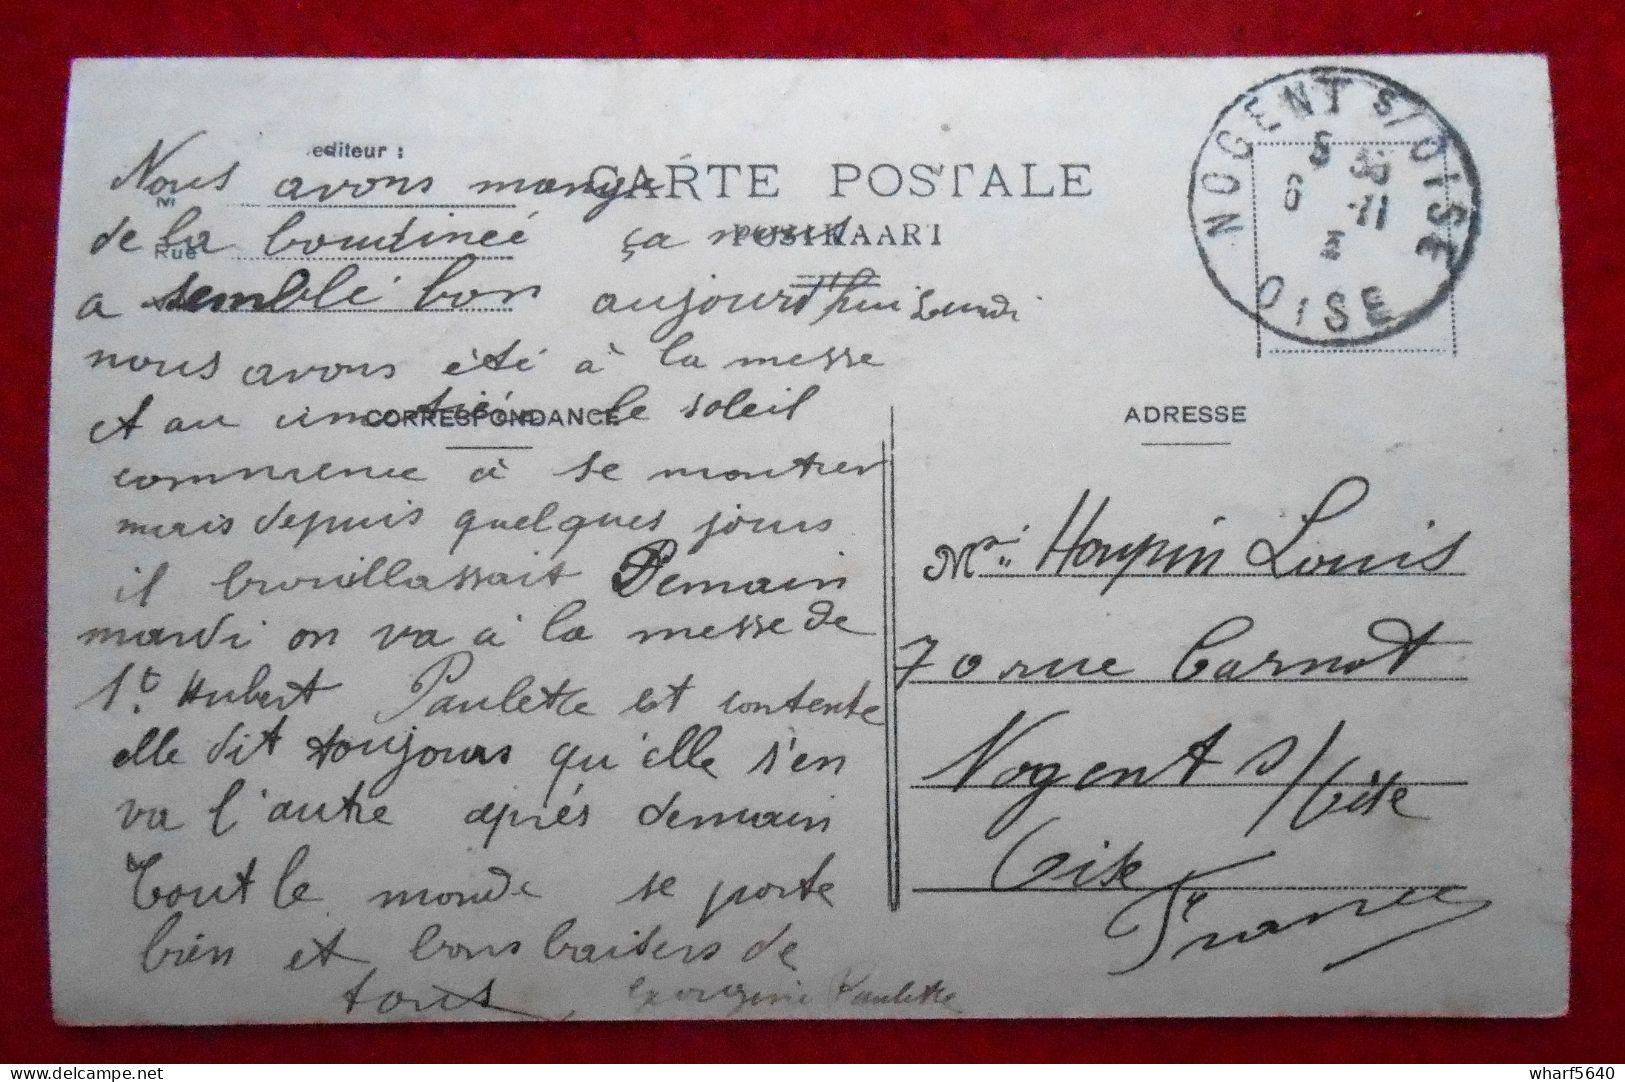 editeur :
M
Rue
CARTE POSTALE
POSTKAART
CORRESPONDANCE
ADRESSE
NOGENT S/ OISE
6 -11
OISE
Nous avons mangé
de la boudineé ça nous
a semblé bon aujourd'hui Lundi
nous avons été à la messe
et au le soleil
commence à se montrer
mais depuis quelques jours
il brouillassait Demain
mardi on va à la messe de
St. Hubert Paulette est contente
elle dit toujours qu'elle s'en
va l'autre après demain
Tout le monde se porte
bien et bons baisers de
tous Georgine Paulette
Mr. Houpin Louis
70 rue Carnot
Nogent s/Oise
Oise
France
wharf5640